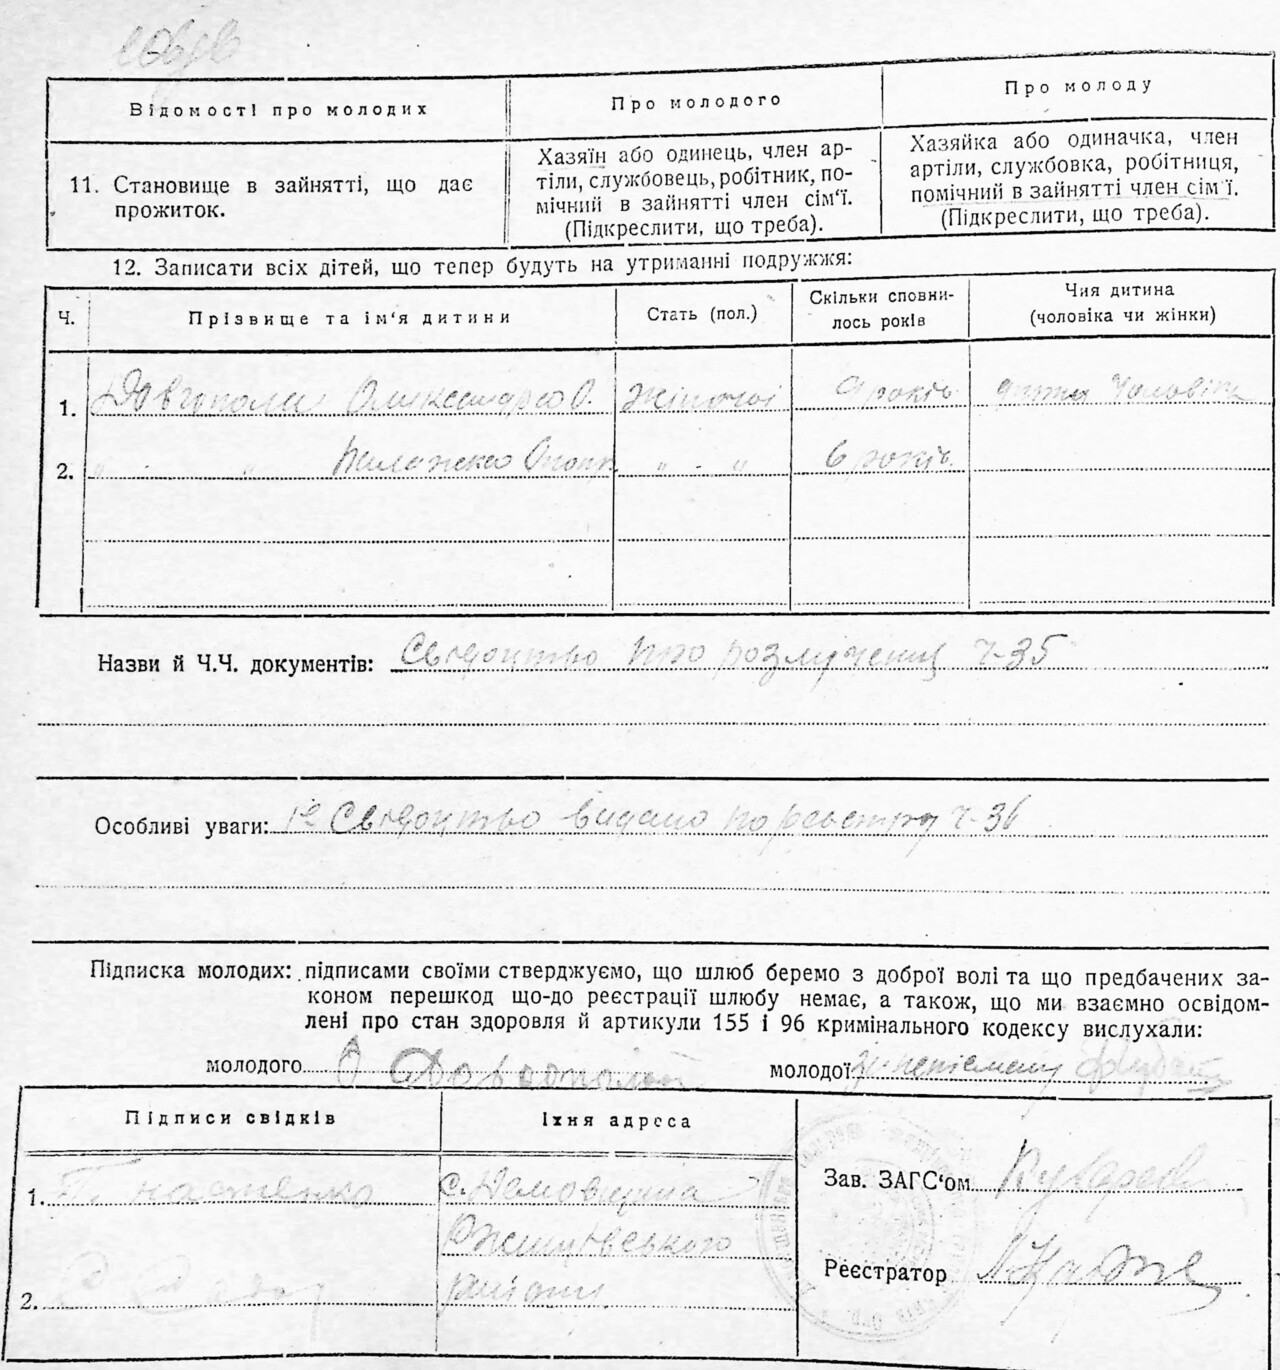 Відомості про молодих
Про молодого
Про молоду
11. Становище в зайнятті, що дає
прожиток.
Хазяїн або одинець, член ар-
тіли, службовець, робітник, по-
мічний в зайнятті член сім'ї.
(Підкреслити, що треба).
Хазяйка або одиначка, член
артіли, службовка, робітниця,
помічний в зайнятті член сім'ї.
(Підкреслити, що треба).
12. Записати всіх дітей, що тепер будуть на утриманні подружжя:
Ч.
Прізвище та ім'я дитини
Стать (пол.)
Скільки сповни-
лось років
Чия дитина
(чоловіка чи жінки)
1. Олександра О. жіночої 9 років дитя чоловіка
2. " - " " - " 6 років.
Назви й Ч.Ч. документів: Свідоцтво про розлучення Ч-35
Особливі уваги: Свідоцтво видано по реєстру Ч-36
Підписка молодих: підписами своїми стверджуємо, що шлюб беремо з доброї волі та що предбачених за-
коном перешкод що-до реєстрації шлюбу немає, а також, що ми взаємно освідом-
лені про стан здоров'я й артикули 155 і 96 кримінального кодексу вислухали:
молодого О
молодої
Підписи свідків
Їхня адреса
1.
с. Демовщина
2.
Зав. ЗАГС'ом
Реєстратор